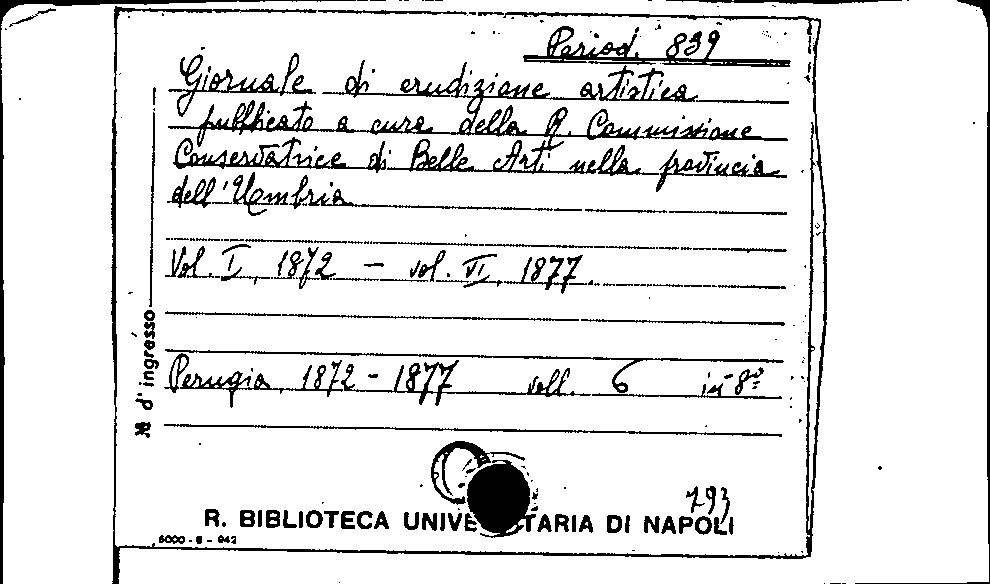 Period. 839
Giornale di erudizione artistica
pubblicato a cura della R. Commissione
Conservatrice di Belle Arti nella provincia
dell'Umbria
Vol. I, 1872 - vol. VI, 1877.
Perugia, 1872 - 1877 voll. 6 in-8º
№ d'ingresso
793
R. BIBLIOTECA UNIVE TARIA DI NAPOLI
5000 - 6 - 942